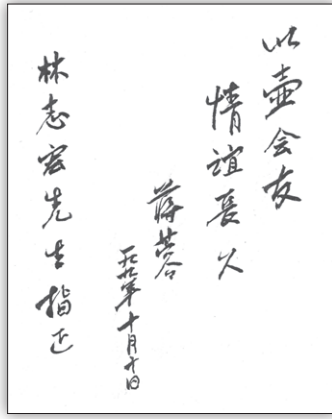 以壶会友
情谊长久
蒋蓉
一九九九年十月十日
林志宏先生指正